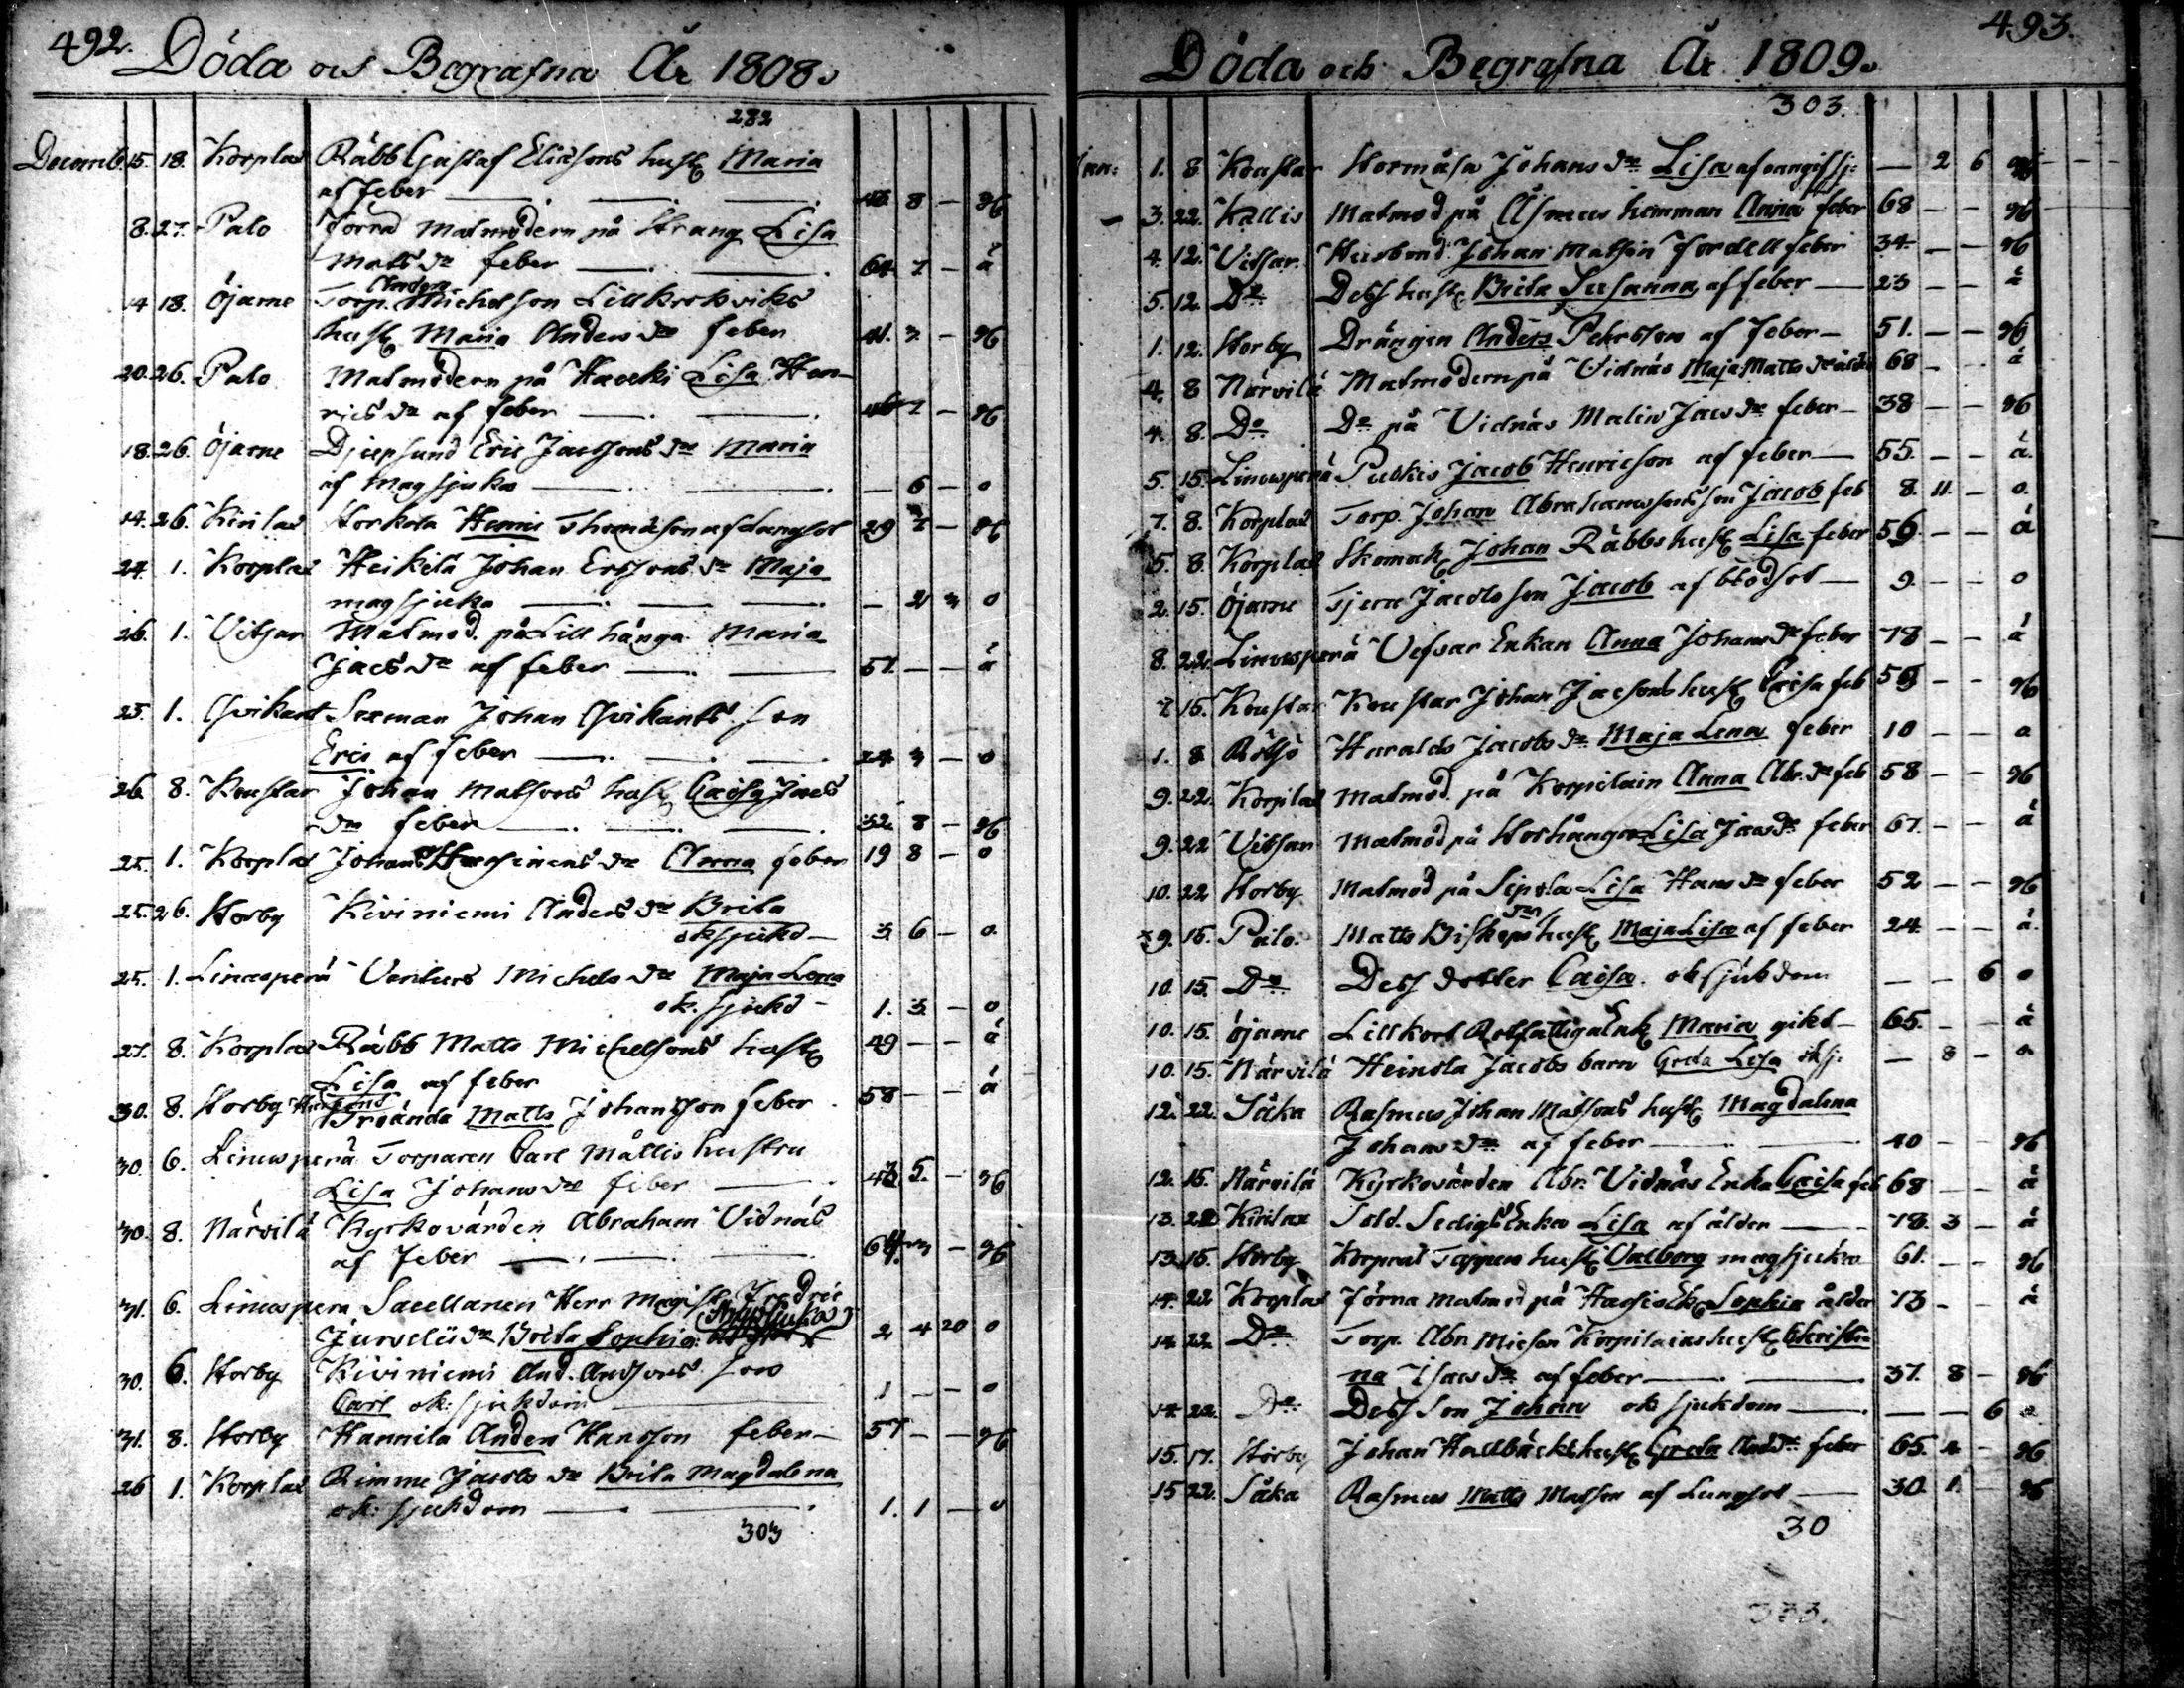 492.
Döda och Begrafna År 1808.
282
Decemb. 15. 18. Korplax Räbb Gustaf Eliæsons hust. Maria
af feber 8 - g
8. 27. Palo Förra Matmodern på Strang Lisa
Mats dr feber 64 7 - ä
14 18. Öjarne Torp. Anders Michelson Lillkrokviks
hust. Maria Anders dr feber 41. 3 - g
20. 26. Palo Matmodern på Hacki Lisa Hen-
rics dr af feber 7 - g
18. 26. Öjarne Djupsund Eric Jacssons dr Maria
af Magsjuka - 6 - o
14. 26. Kirilax Storkola Henric Thomason af lungsot 29 7 - g
24. 1. Korplax Heikilä Johan Erssons dr Maja
magsjuka - 2 3 o
26. 1. Vitsar Matmod. på Lill hånga Maria
Jacs dr af feber 57. - - ä
23. 1. Qvikant Sexman Johan Qvikants son
Eric af feber 24 3 - o
26 8. Koustar Johan Matsons hust. Caisa Jacs
dr feber 32. 8 - g
25. 1. Korplax Johan dr Anna feber 19 8 - o
25. 26. Storby Kiviniemi Anders dr Brita
ok sjukd - 3 6 - o
25. 1. Linusperä Michels dr Maja Lena
ok. sjukd - 1. 3 - o
27. 8. Korplax Räbb Matts Michelsons hust.
Lisa af feber 49 - - ä
30. 8. Storby Matts Johansson feber 58 - - ä
30 6. Linusperä Torparen Carl Mållis hustru
Lisa Johans dr feber 43 5. - g
30. 8. Närvilä Kyrkovärden Abraham Vidnäs
af feber 64 3 - g
31. 6. Linuspera Sacellanen Herr Magist. Fredric
Jurvelii dr Brita Sophia 2 4 20 o
30. 6. Storby Kiviniemi And. Andsons son
Carl ok: sjukdom 1 - - o
31. 8. Storby Kannila Anders Hansson feber - 57 - - g
26 1. Korplax Rimme Jacobs dr Brita Magdalena
ok: sjukdom 1. 1 - o
303
493.
Döda och Begrafna År 1809.
303.
Jan: 1. 8. Koustar Stormåsa Johans dr Lisa af oangif sj: - 2 6
- 3. 22. Kallis Matmod på Åsmus hemman Anna feber 68 - - g
4. 12. Vitsar. Husbond. Johan Matson Fordell feber 34 - - g
5. 12. Do Dess hust. Brita Susanna af feber 23 - - ä
1. 12. Storby Drängen Anders Pehrsson af feber - 51. - - g
4. 8 Närvilä Matmodern på Vidnäs Maja Matts dr ålder 68 - - ä
4. 8. Do Do på Vidnäs Malin Jacs dr feber - 38 - - g
5. 15. Linusperä Puskis Jacob Henricson af feber - 55. - - ä.
7. 8. Korplax Torp. Johan Abrahamssons son Jacob feb 8. 11. - o
5. 8. Korplax Skomak. Johan Räbbs hust. Lisa feber 56. - - ä
2. 15. Öjarne Tjeru Jacobs son Jacob af blodsot - 9. - - o
8. 22. Linusperä Vefvar Enkan Anna Johans dr feber 78 - - ä
7. 15. Koustar Koustar Johan Jacsons hust. Caisa feb 56 - - g
1. 8. Rötsö Haralds Jacobs dr Maja Lena feber 10 - - o
9. 22. Korplax Matmod. på Korpilain Anna Abr. dr feb 58 - - g
9. 22 Vitsar Matmod på Storhånga Lisa Jacs dr feber 67. - - ä
10. 22 Storby Matmod på Sipola Lisa Hans dr feber 52 - - g
9. 15. Palo. Matts Biskops hust. Maja Lisa af feber 24 - - ä.
10. 15. Do Dess dotter Caisa. ok sjukdom - - 6 o
10. 15. Öjarne Lillkort Rotfattiga Enk. Maria gikt - 65. - - ä
10. 15. Närvilä Heinola Jacobs barn Greta Lisa ok sj: - 8 - o
12. 22. Såka Rasmus Johan Matsons hust. Magdalena
Johans dr af feber 40 - - g
12. 15. Närvilä Kyrkovärden Abr. Vidnäs Enka Caisa feb 68 - - ä
13. 22 Kirilax Sold. Sedigs Enka Lisa af ålder 78. 3 - ä
13. 15. Storby Korporal Tappers hust. Valborg magsjuka 61. - - g
14. 22 Korplax Förra Matmod på Sophia ålder 73 - - ä
14. 22. Do Torp. Abr. Micson Korpilains hust. Christi-
na Isacs dr af feber 37. 8 - g
14. 22. Do Dess Son Johan ok sjukdom - - 6 o
15. 17. Storby Johan Hallbäcks hust. Greta And. dr feber 65. 2 - g
15 22. Såka Rasmus Matts Matson af Lungsot 30. 1. - g
30
333.